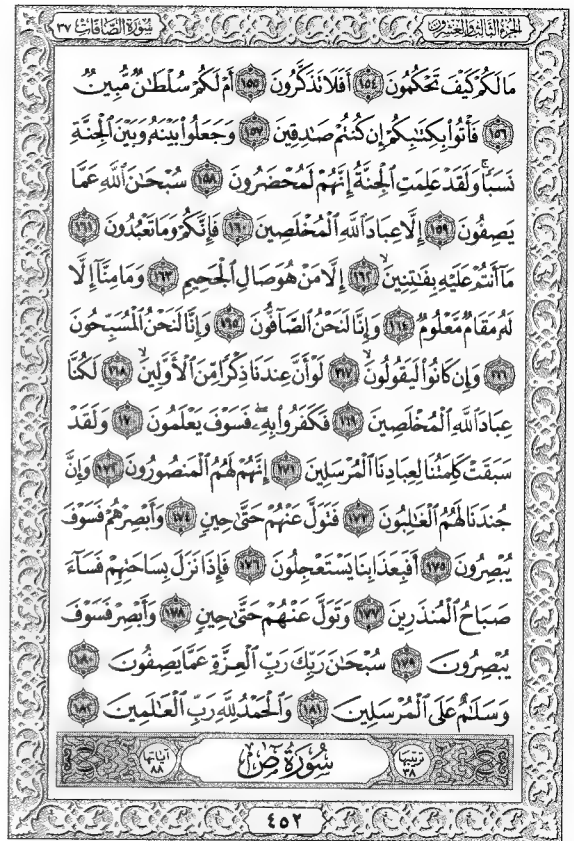 الجزء الثالث والعشرون سورة الصافات ٣٧
مَالَكُمْ كَيْفَ تَحْكُمُونَ ١٥٤ أَفَلَا تَذَكَّرُونَ ١٥٥ أَمْ لَكُمْ سُلْطَٰنٌ مُّبِينٌ
١٥٦ فَأْتُوا۟ بِكِتَٰبِكُمْ إِن كُنتُمْ صَٰدِقِينَ ١٥٧ وَجَعَلُوا۟ بَيْنَهُۥ وَبَيْنَ ٱلْجِنَّةِ
نَسَبًا ۚ وَلَقَدْ عَلِمَتِ ٱلْجِنَّةُ إِنَّهُمْ لَمُحْضَرُونَ ١٥٨ سُبْحَٰنَ ٱللَّهِ عَمَّا
يَصِفُونَ ١٥٩ إِلَّا عِبَادَ ٱللَّهِ ٱلْمُخْلَصِينَ ١٦٠ فَإِنَّكُمْ وَمَا تَعْبُدُونَ ١٦١
مَآ أَنتُمْ عَلَيْهِ بِفَٰتِنِينَ ١٦٢ إِلَّا مَنْ هُوَ صَالِ ٱلْجَحِيمِ ١٦٣ وَمَا مِنَّآ إِلَّا
لَهُۥ مَقَامٌ مَّعْلُومٌ ١٦٤ وَإِنَّا لَنَحْنُ ٱلصَّآفُّونَ ١٦٥ وَإِنَّا لَنَحْنُ ٱلْمُسَبِّحُونَ
١٦٦ وَإِن كَانُوا۟ لَيَقُولُونَ ١٦٧ لَوْ أَنَّ عِندَنَا ذِكْرًا مِّنَ ٱلْأَوَّلِينَ ١٦٨ لَكُنَّا
عِبَادَ ٱللَّهِ ٱلْمُخْلَصِينَ ١٦٩ فَكَفَرُوا۟ بِهِۦ ۖ فَسَوْفَ يَعْلَمُونَ ١٧٠ وَلَقَدْ
سَبَقَتْ كَلِمَتُنَا لِعِبَادِنَا ٱلْمُرْسَلِينَ ١٧١ إِنَّهُمْ لَهُمُ ٱلْمَنصُورُونَ ١٧٢ وَإِنَّ
جُندَنَا لَهُمُ ٱلْغَٰلِبُونَ ١٧٣ فَتَوَلَّ عَنْهُمْ حَتَّىٰ حِينٍ ١٧٤ وَأَبْصِرْهُمْ فَسَوْفَ
يُبْصِرُونَ ١٧٥ أَفَبِعَذَابِنَا يَسْتَعْجِلُونَ ١٧٦ فَإِذَا نَزَلَ بِسَاحَتِهِمْ فَسَآءَ
صَبَاحُ ٱلْمُنذَرِينَ ١٧٧ وَتَوَلَّ عَنْهُمْ حَتَّىٰ حِينٍ ١٧٨ وَأَبْصِرْ فَسَوْفَ
يُبْصِرُونَ ١٧٩ سُبْحَٰنَ رَبِّكَ رَبِّ ٱلْعِزَّةِ عَمَّا يَصِفُونَ ١٨٠
وَسَلَٰمٌ عَلَى ٱلْمُرْسَلِينَ ١٨١ وَٱلْحَمْدُ لِلَّهِ رَبِّ ٱلْعَٰلَمِينَ ١٨٢
ترتيبها ٣٨ سُورَةُ صٓ آياتها ٨٨
٤٥٢